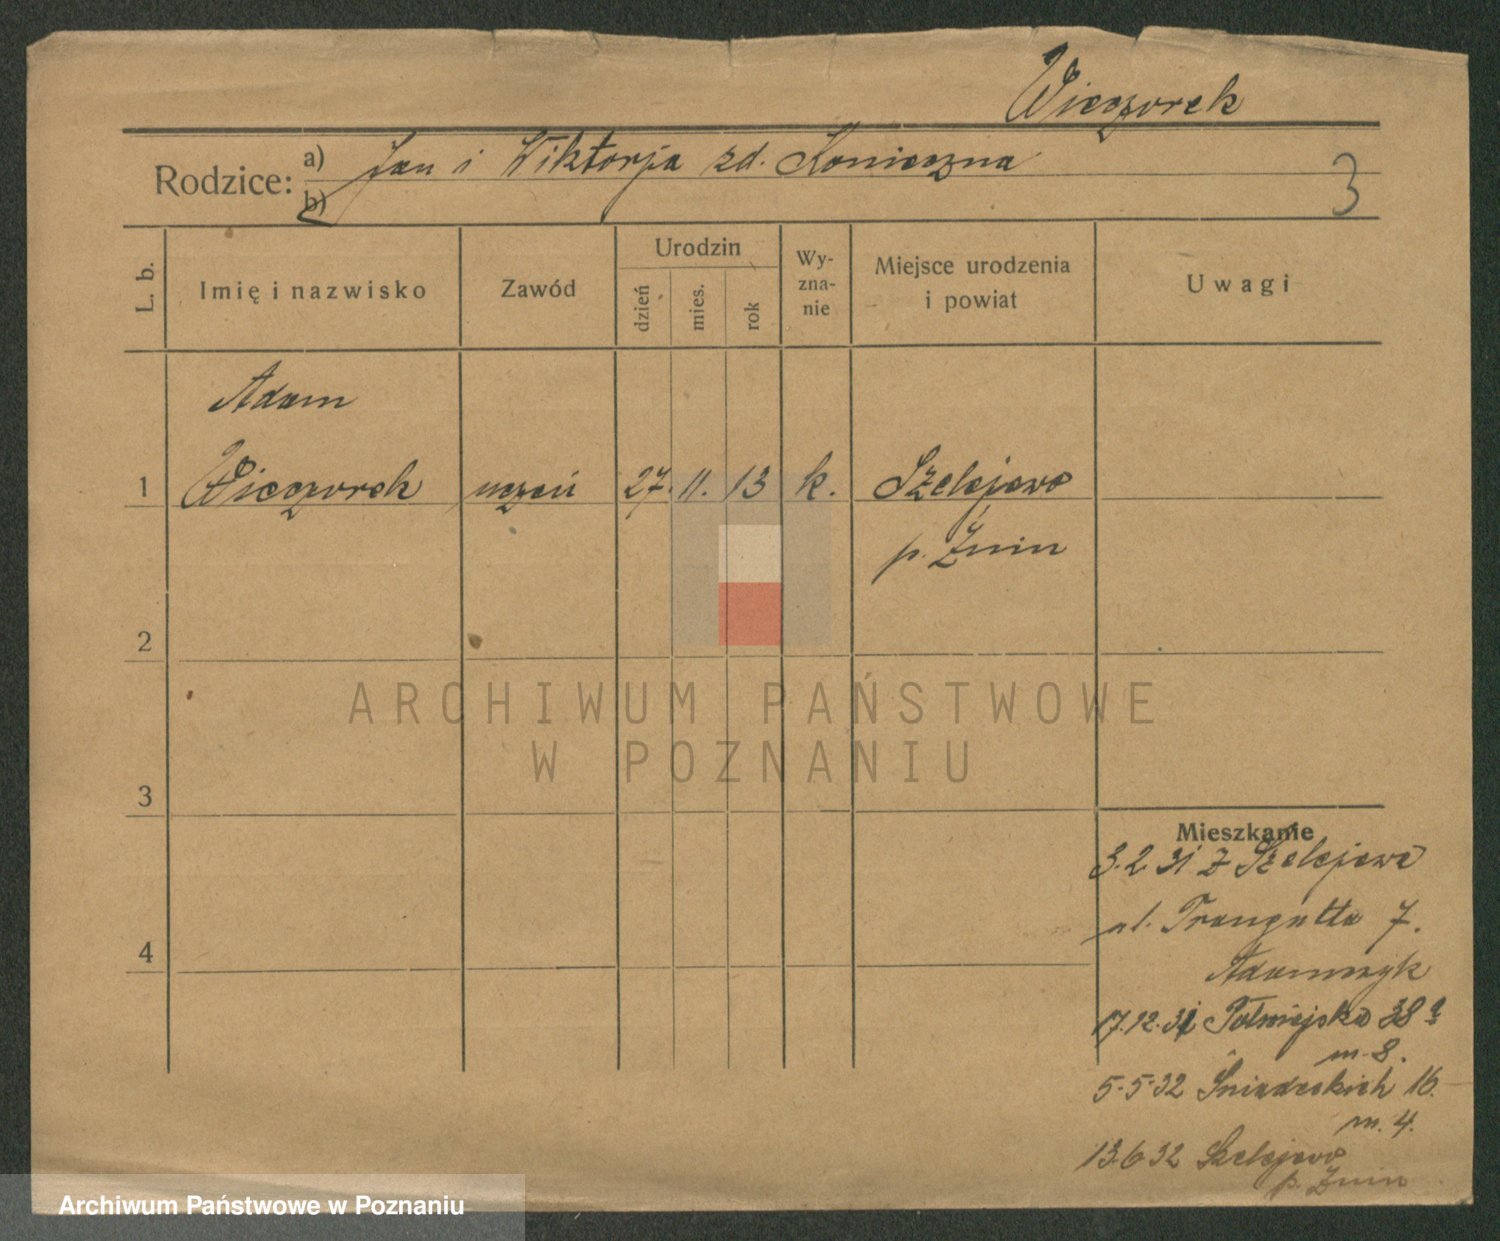 Wieczorek
Rodzice: a) Jan i Wiktorja zd. Konieczna
b)
3
L. b.
Imię i nazwisko
Zawód
Urodzin
dzień
mies.
rok
Wy-
zna-
nie
Miejsce urodzenia
i powiat
Uwagi
Adam
1 Wieczorek uczeń 27. 11. 13 k. Szelejewo
p. Żnin
2
3
4
Mieszkanie
3.2.31 z Szelejewo
ul. Traugutta 7.
Adamczyk
17.12.31 Półwiejska 38a
m. 8.
5.5.32 Śniadeckich 16.
m. 4.
13.6.32 Szelejewo
p. Żnin
ARCHIWUM PAŃSTWOWE
W POZNANIU
Archiwum Państwowe w Poznaniu